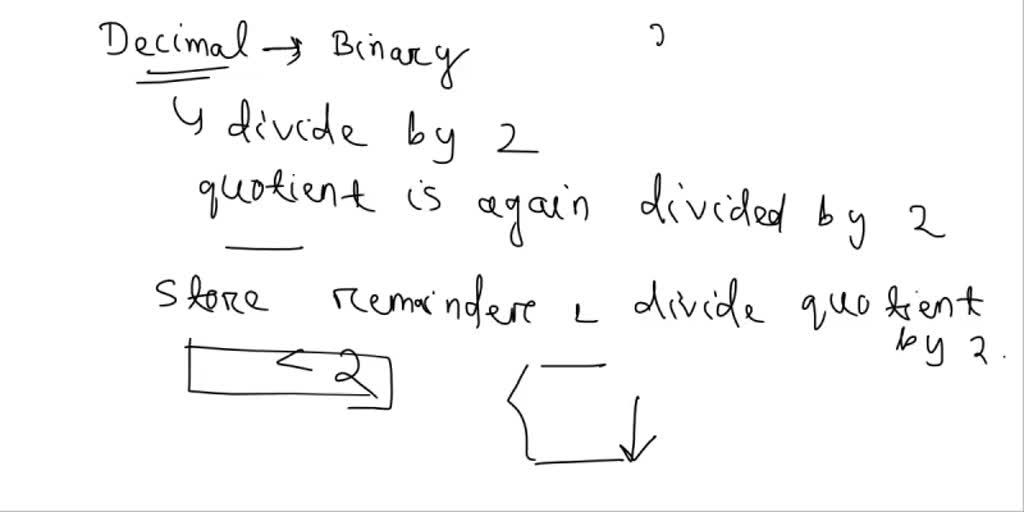 Decimal → Binary
↳ divide by 2
quotient is again divided by 2
store remainder & divide quotient
by 2.
< 2